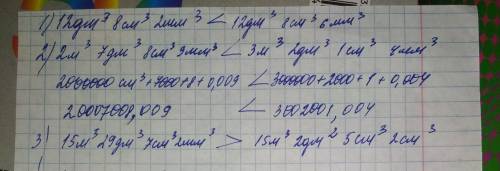 1) 12дм³ 8см³ 2мм³ < 12дм³ 8см³ 6мм³
2) 2м³ 7дм³ 8см³ 9мм³ < 3м³ 2дм³ 1см³ 4мм³
2000000 см³ + 7000 + 8 + 0,009 < 3000000 + 2000 + 1 + 0,004
20007008,009 < 3002001,004
3) 15м³ 29дм³ 7см³ 2мм³ > 15м³ 2дм² 5см³ 2см³